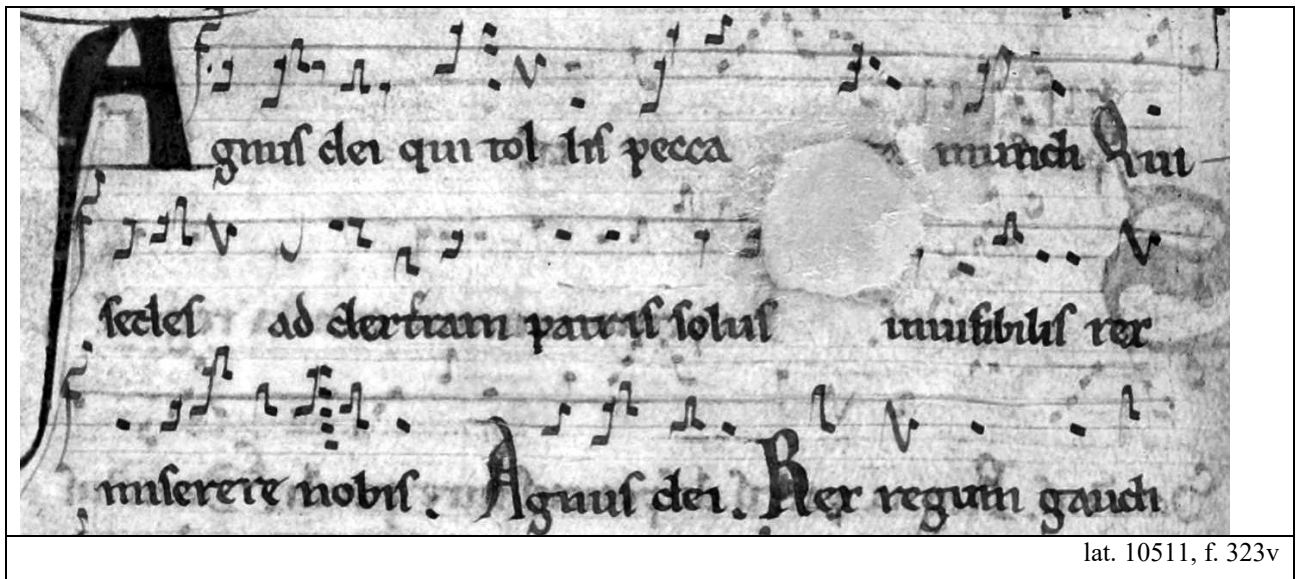 Agnus dei qui tol lis pecca mundi Qui
sedes ad dextram patris solus inuisibilis rex
miserere nobis. Agnus dei. Rex regum gaudi
lat. 10511, f. 323v